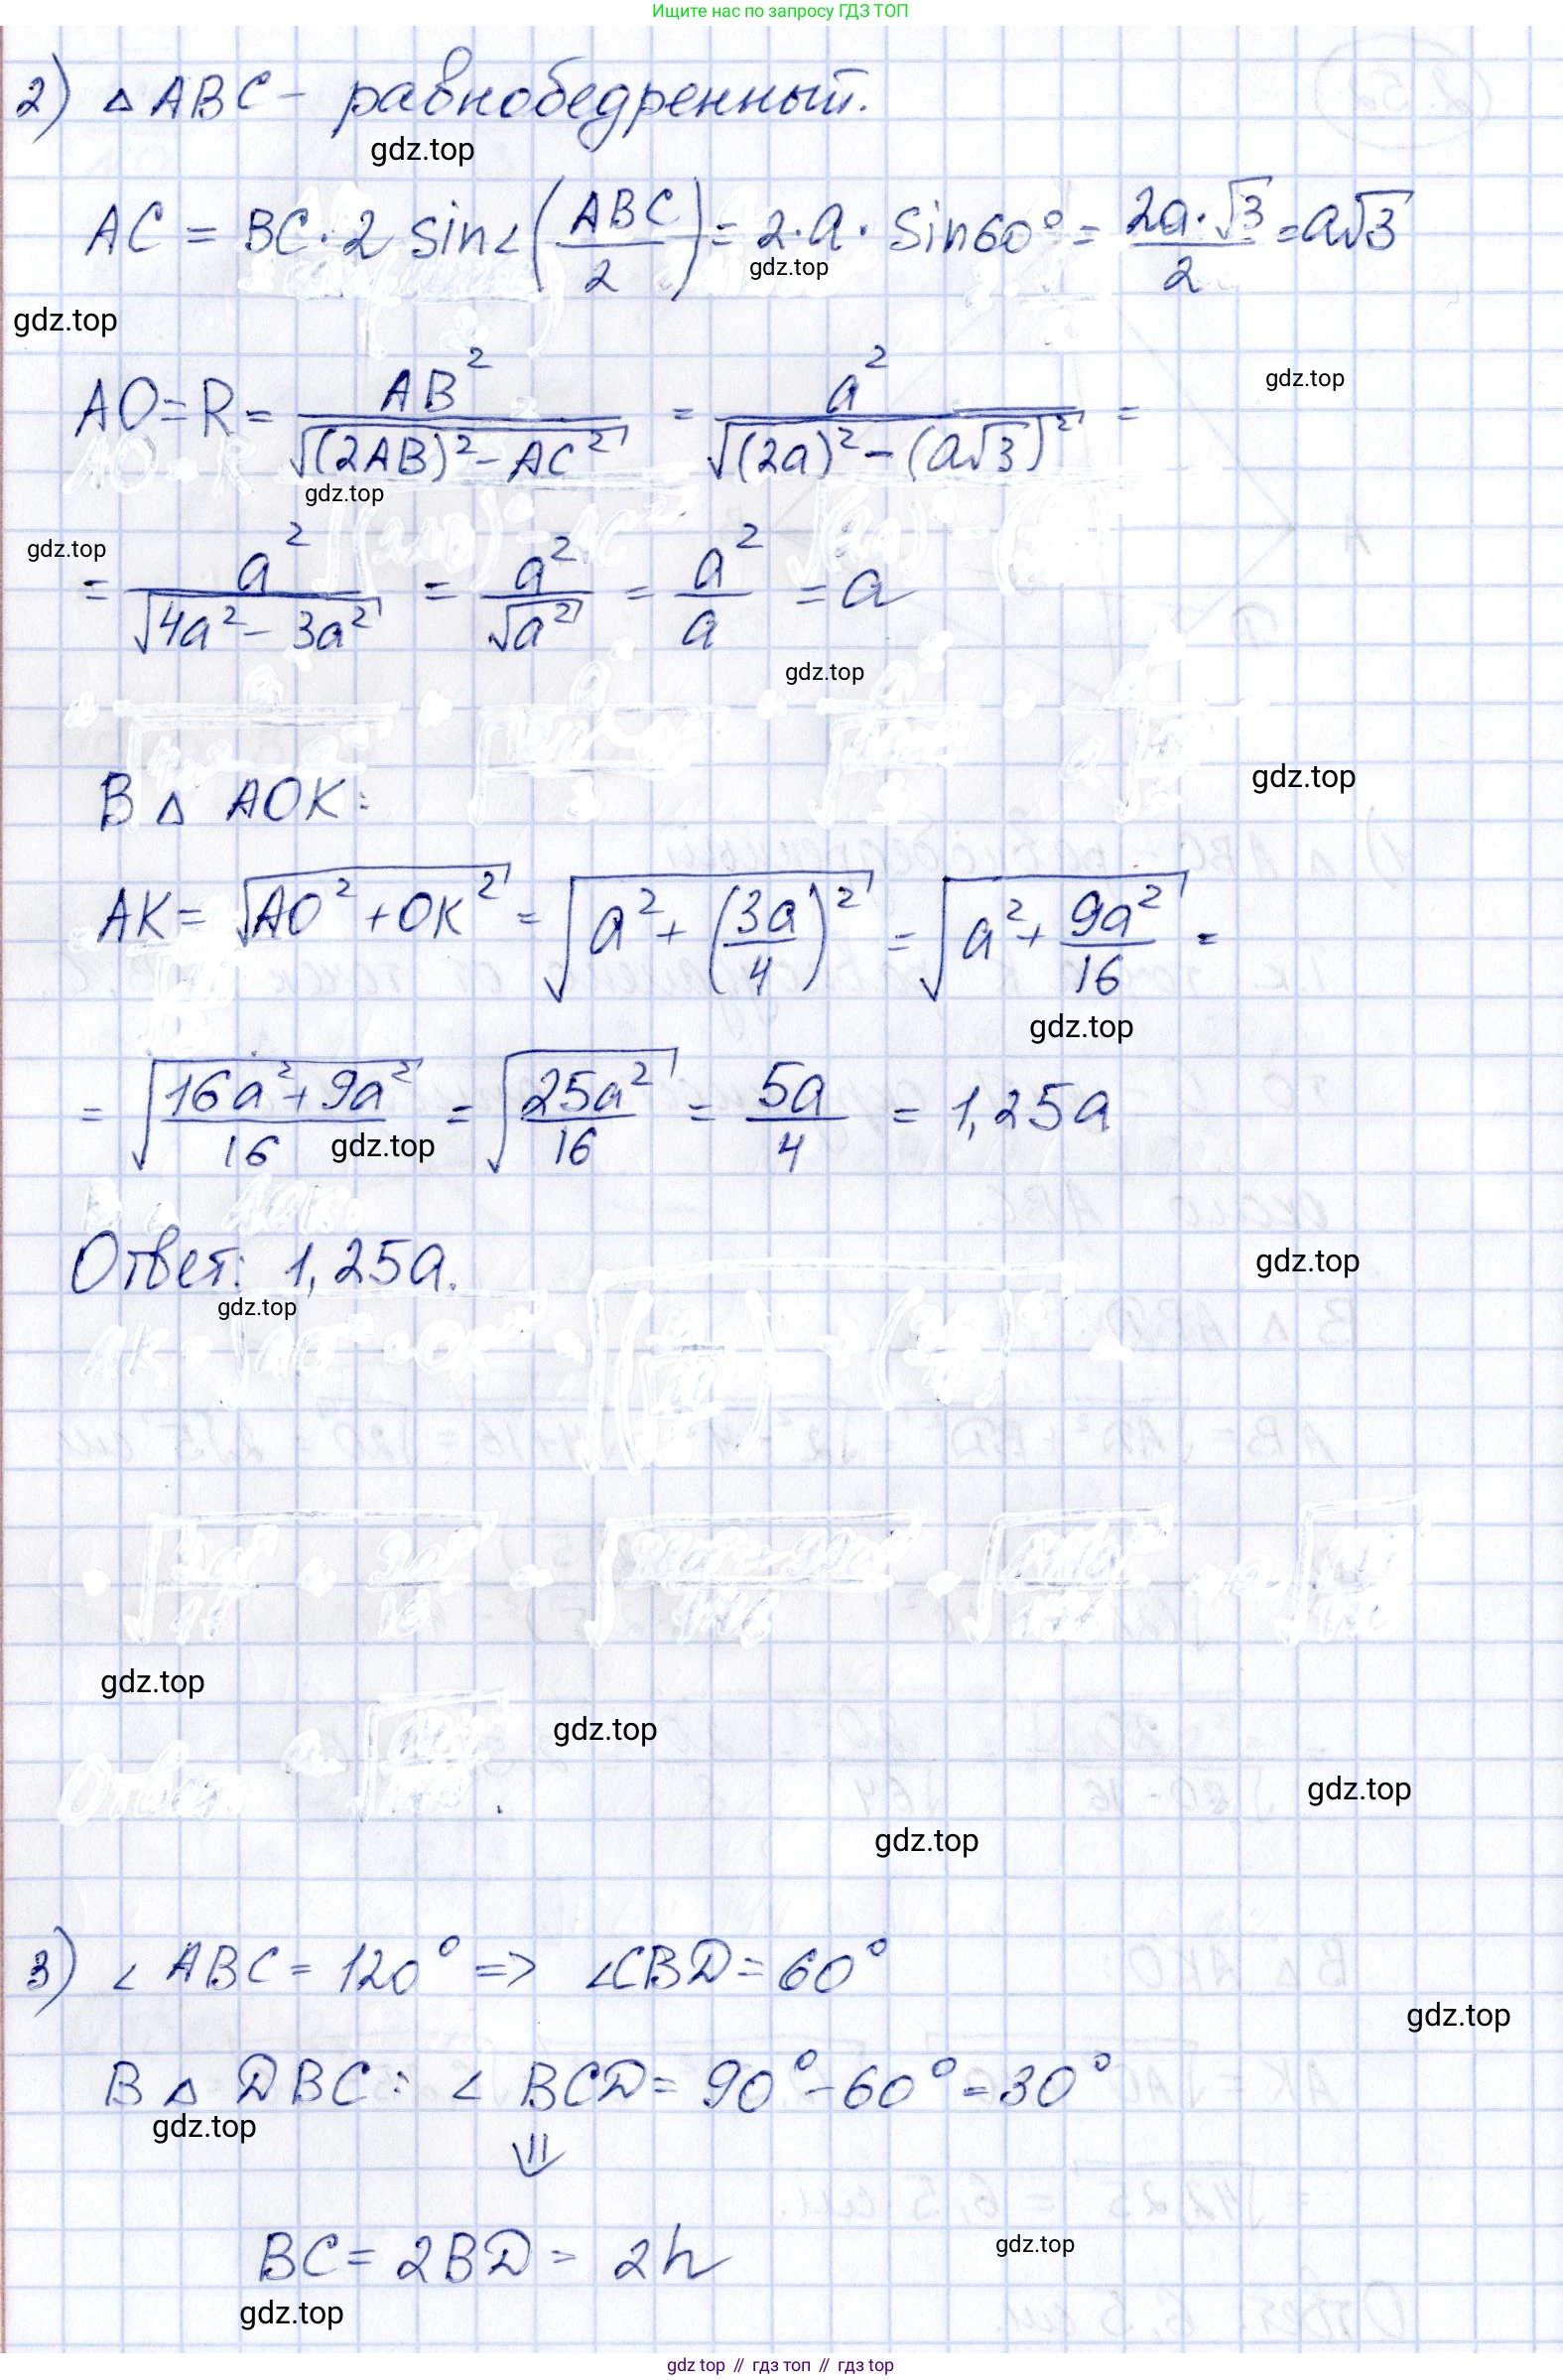 Ищите нас по запросу ГДЗ ТОП
2) △ ABC – равнобедренный.
gdz.top
AC = BC · 2 sin∠(ABC/2) = 2·a· sin60° = 2a·√3/2 = a√3
gdz.top
gdz.top
AO = R = AB²/√((2AB)² – AC²) = a²/√((2a)² – (a√3)²) =
gdz.top
gdz.top
= a²/√(4a² – 3a²) = a²/√(a²) = a²/a = a
gdz.top
gdz.top
В △ AOK:
gdz.top
AK = √(AO² + OK²) = √(a² + (3a/4)²) = √(a² + 9a²/16) =
gdz.top
= √((16a² + 9a²)/16) = √(25a²/16) = 5a/4 = 1,25a
gdz.top
Ответ: 1,25a.
gdz.top
gdz.top
gdz.top
gdz.top
gdz.top
gdz.top
3) ∠ ABC = 120° => ∠CBD = 60°
gdz.top
В △ DBC: ∠ BCD = 90° – 60° = 30°
gdz.top
⇓
BC = 2BD = 2h
gdz.top
gdz.top
gdz top // гдз топ // гдз top